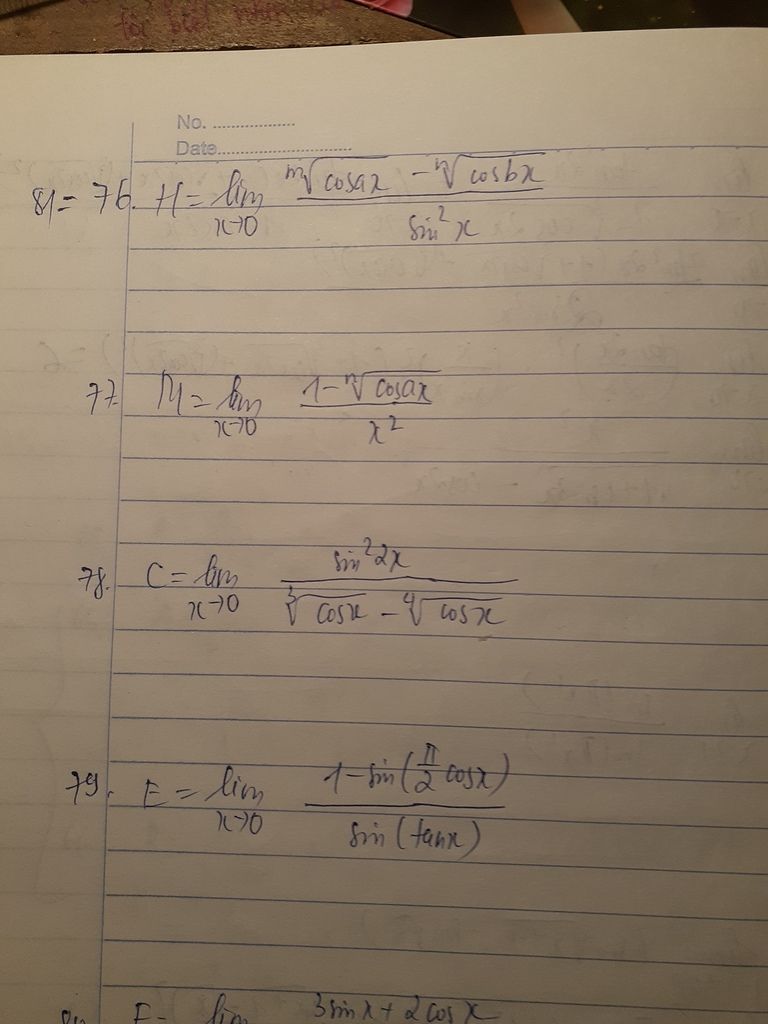 No. ..................
Date..............................
81= 76. H = lim_{x→0} \frac{\sqrt[m]{cosax} - \sqrt[n]{cosbx}}{sin^2 x}
77. M = lim_{x→0} \frac{1-\sqrt[n]{cosax}}{x^2}
78. C = lim_{x→0} \frac{sin^2 2x}{\sqrt[3]{cosx} - \sqrt[4]{cosx}}
79. E = lim_{x→0} \frac{1-sin(\frac{π}{2} cosx)}{sin(tanx)}
F= lim 3sinx + 2cosx